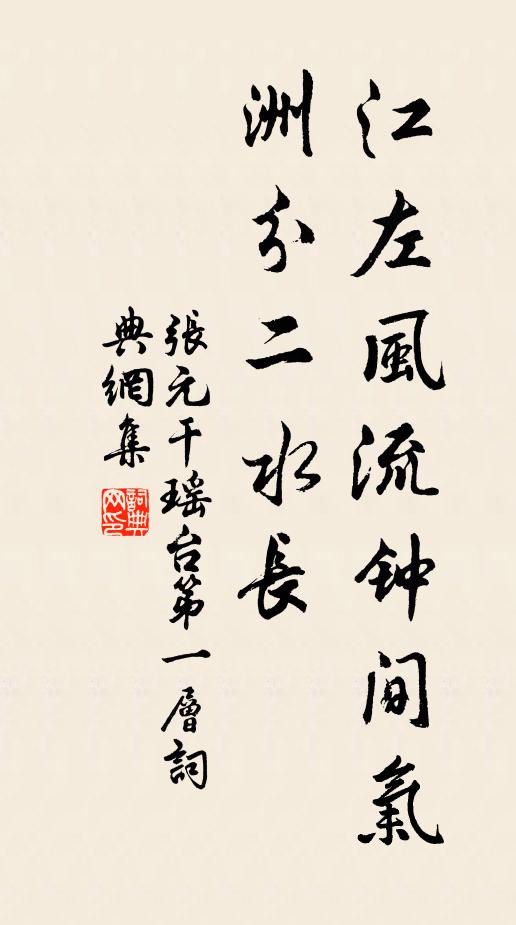 江左風流钟间氣
洲分二水長
張元干瑶台第一層詞
典網集
詞典网印